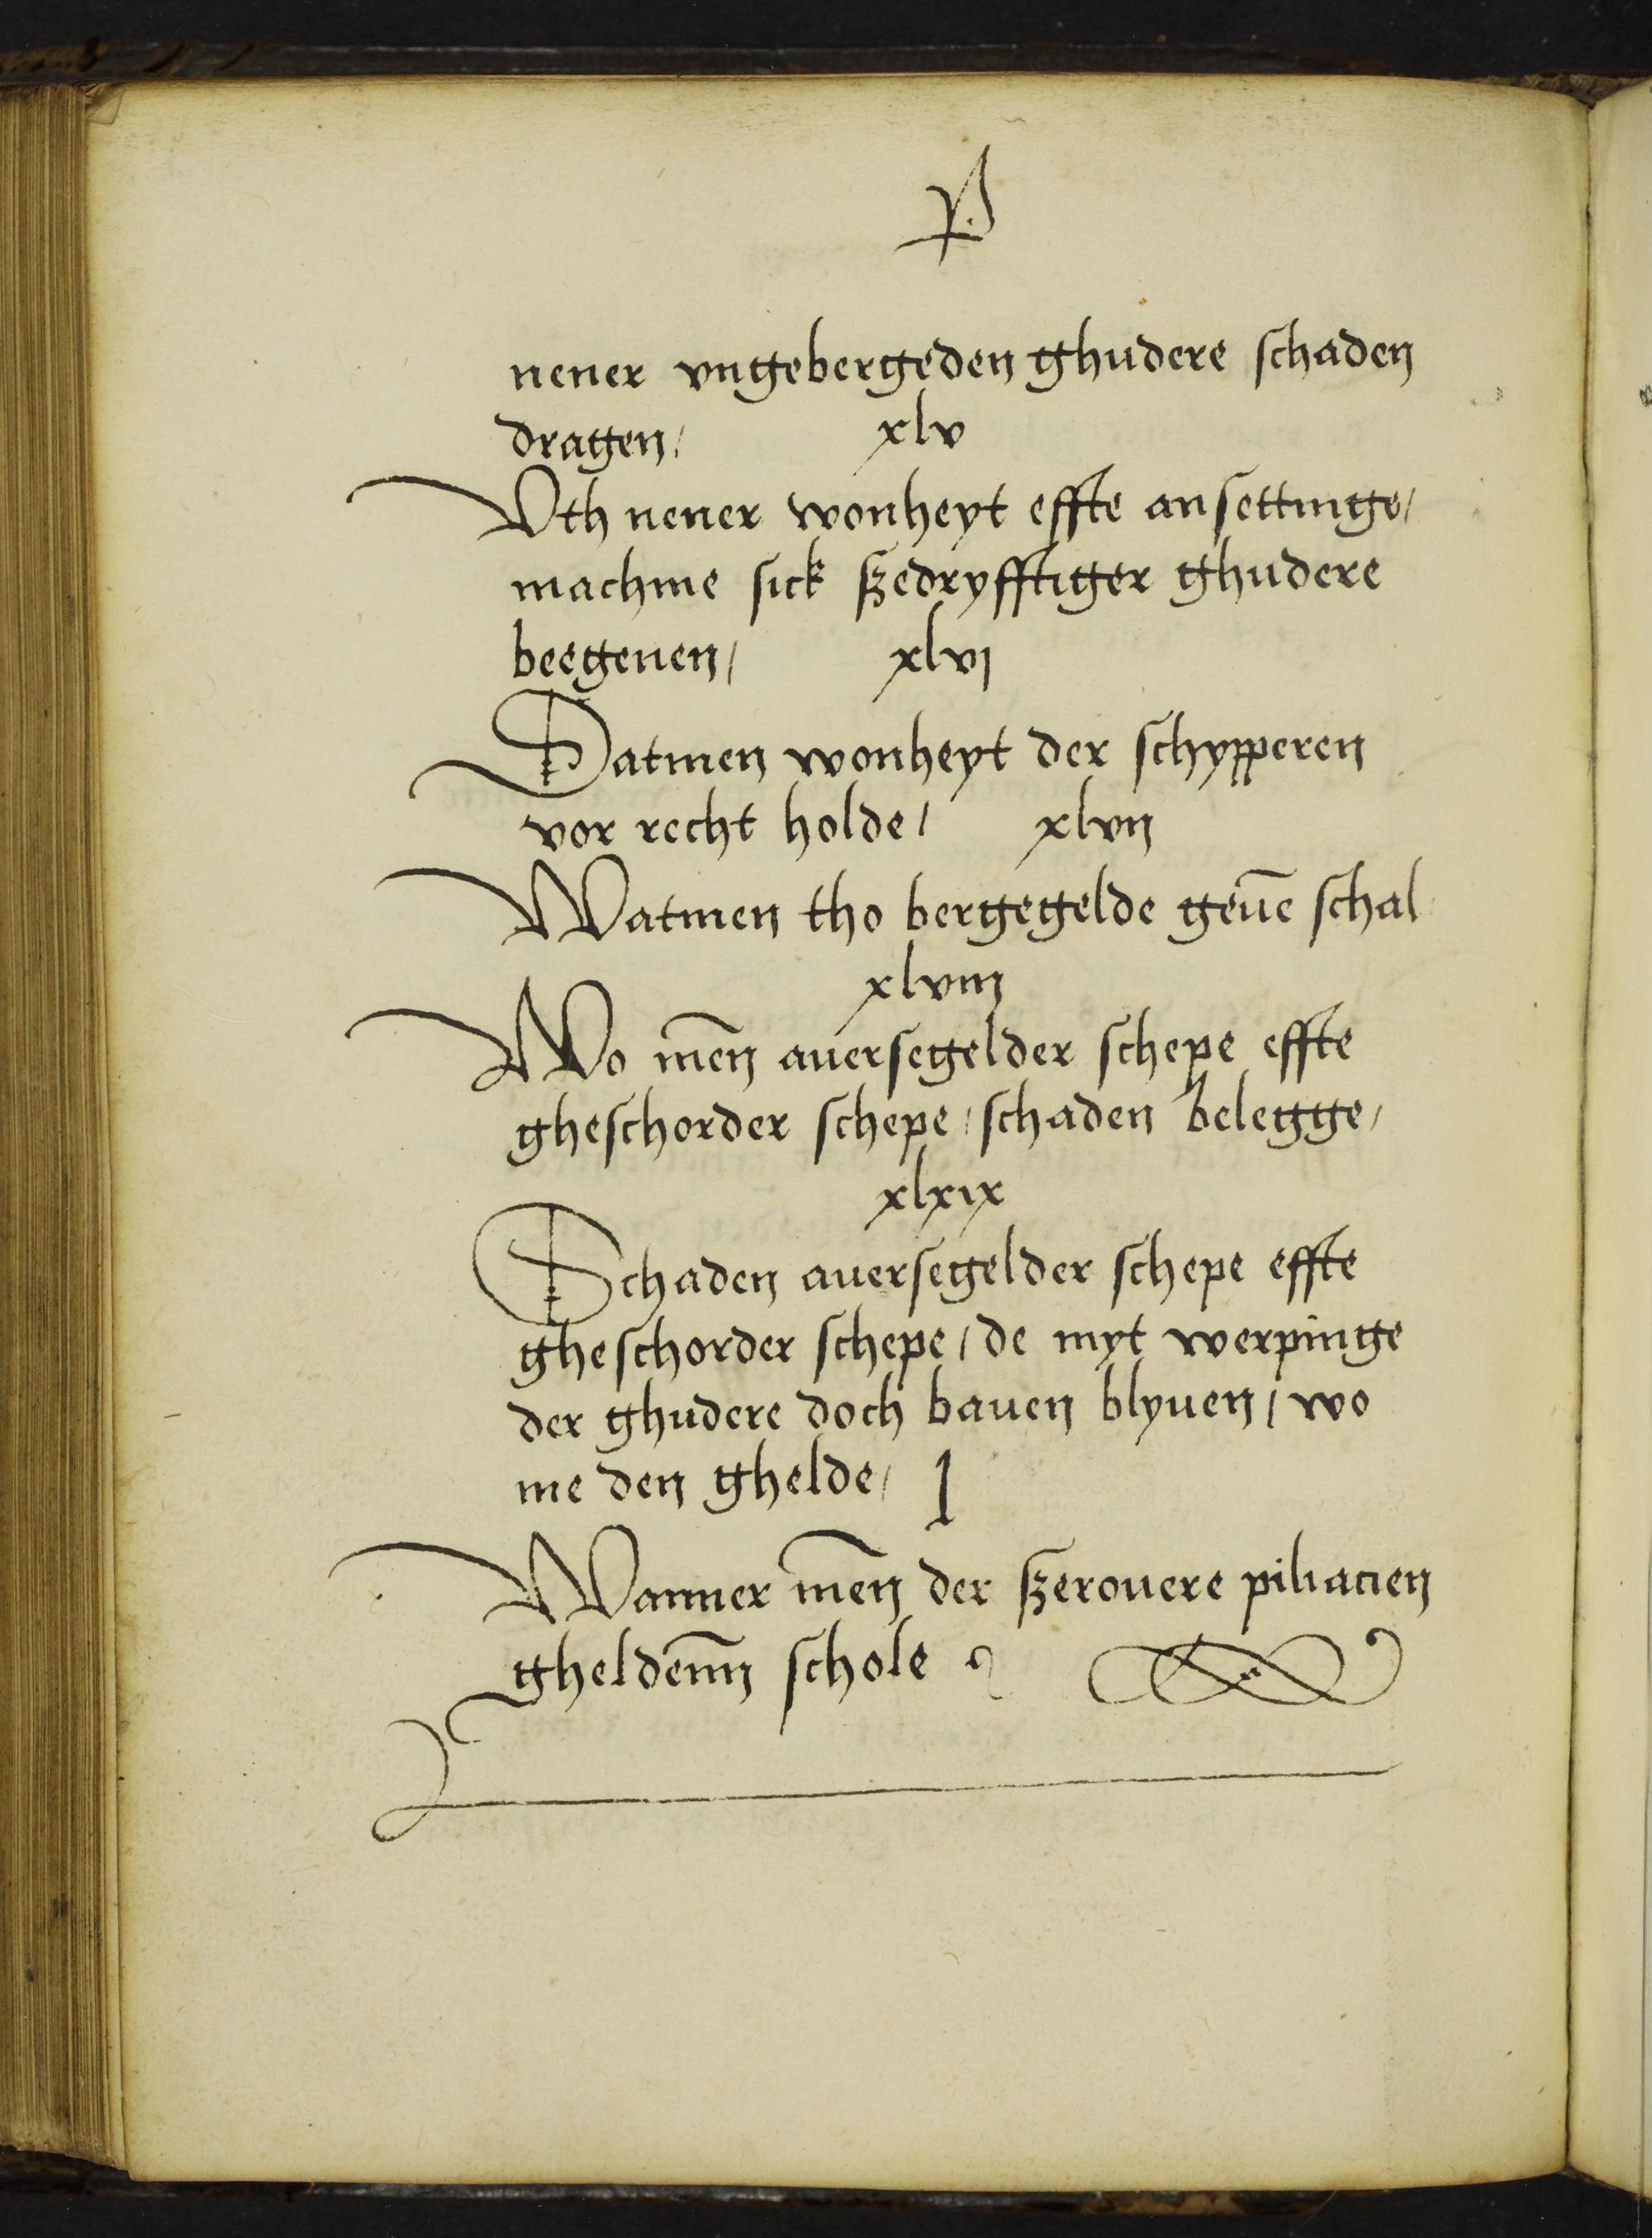 P.
nener vngebergeden ghudere schaden
dragen/ xlv
Vth nener wonheyt effte ansettinge/
machme sick szedryfftiger ghudere
beegenen/ xlvj
Datmen wonheyt der schypperen
vor recht holde/ xlvij
Watmen tho bergegelde geue̅ schal
xlviij
Wo me̅n auersegelder schepe effte
gheschorder schepe/ schaden belegge/
xlxix
Schaden auersegelder schepe effte
gheschorder schepe/ de myt werpinge
der ghudere doch bauen blyuen/ wo
me den ghelde/ l
Wanner me̅n der szerouere piliacien
gheldenn̅ schole